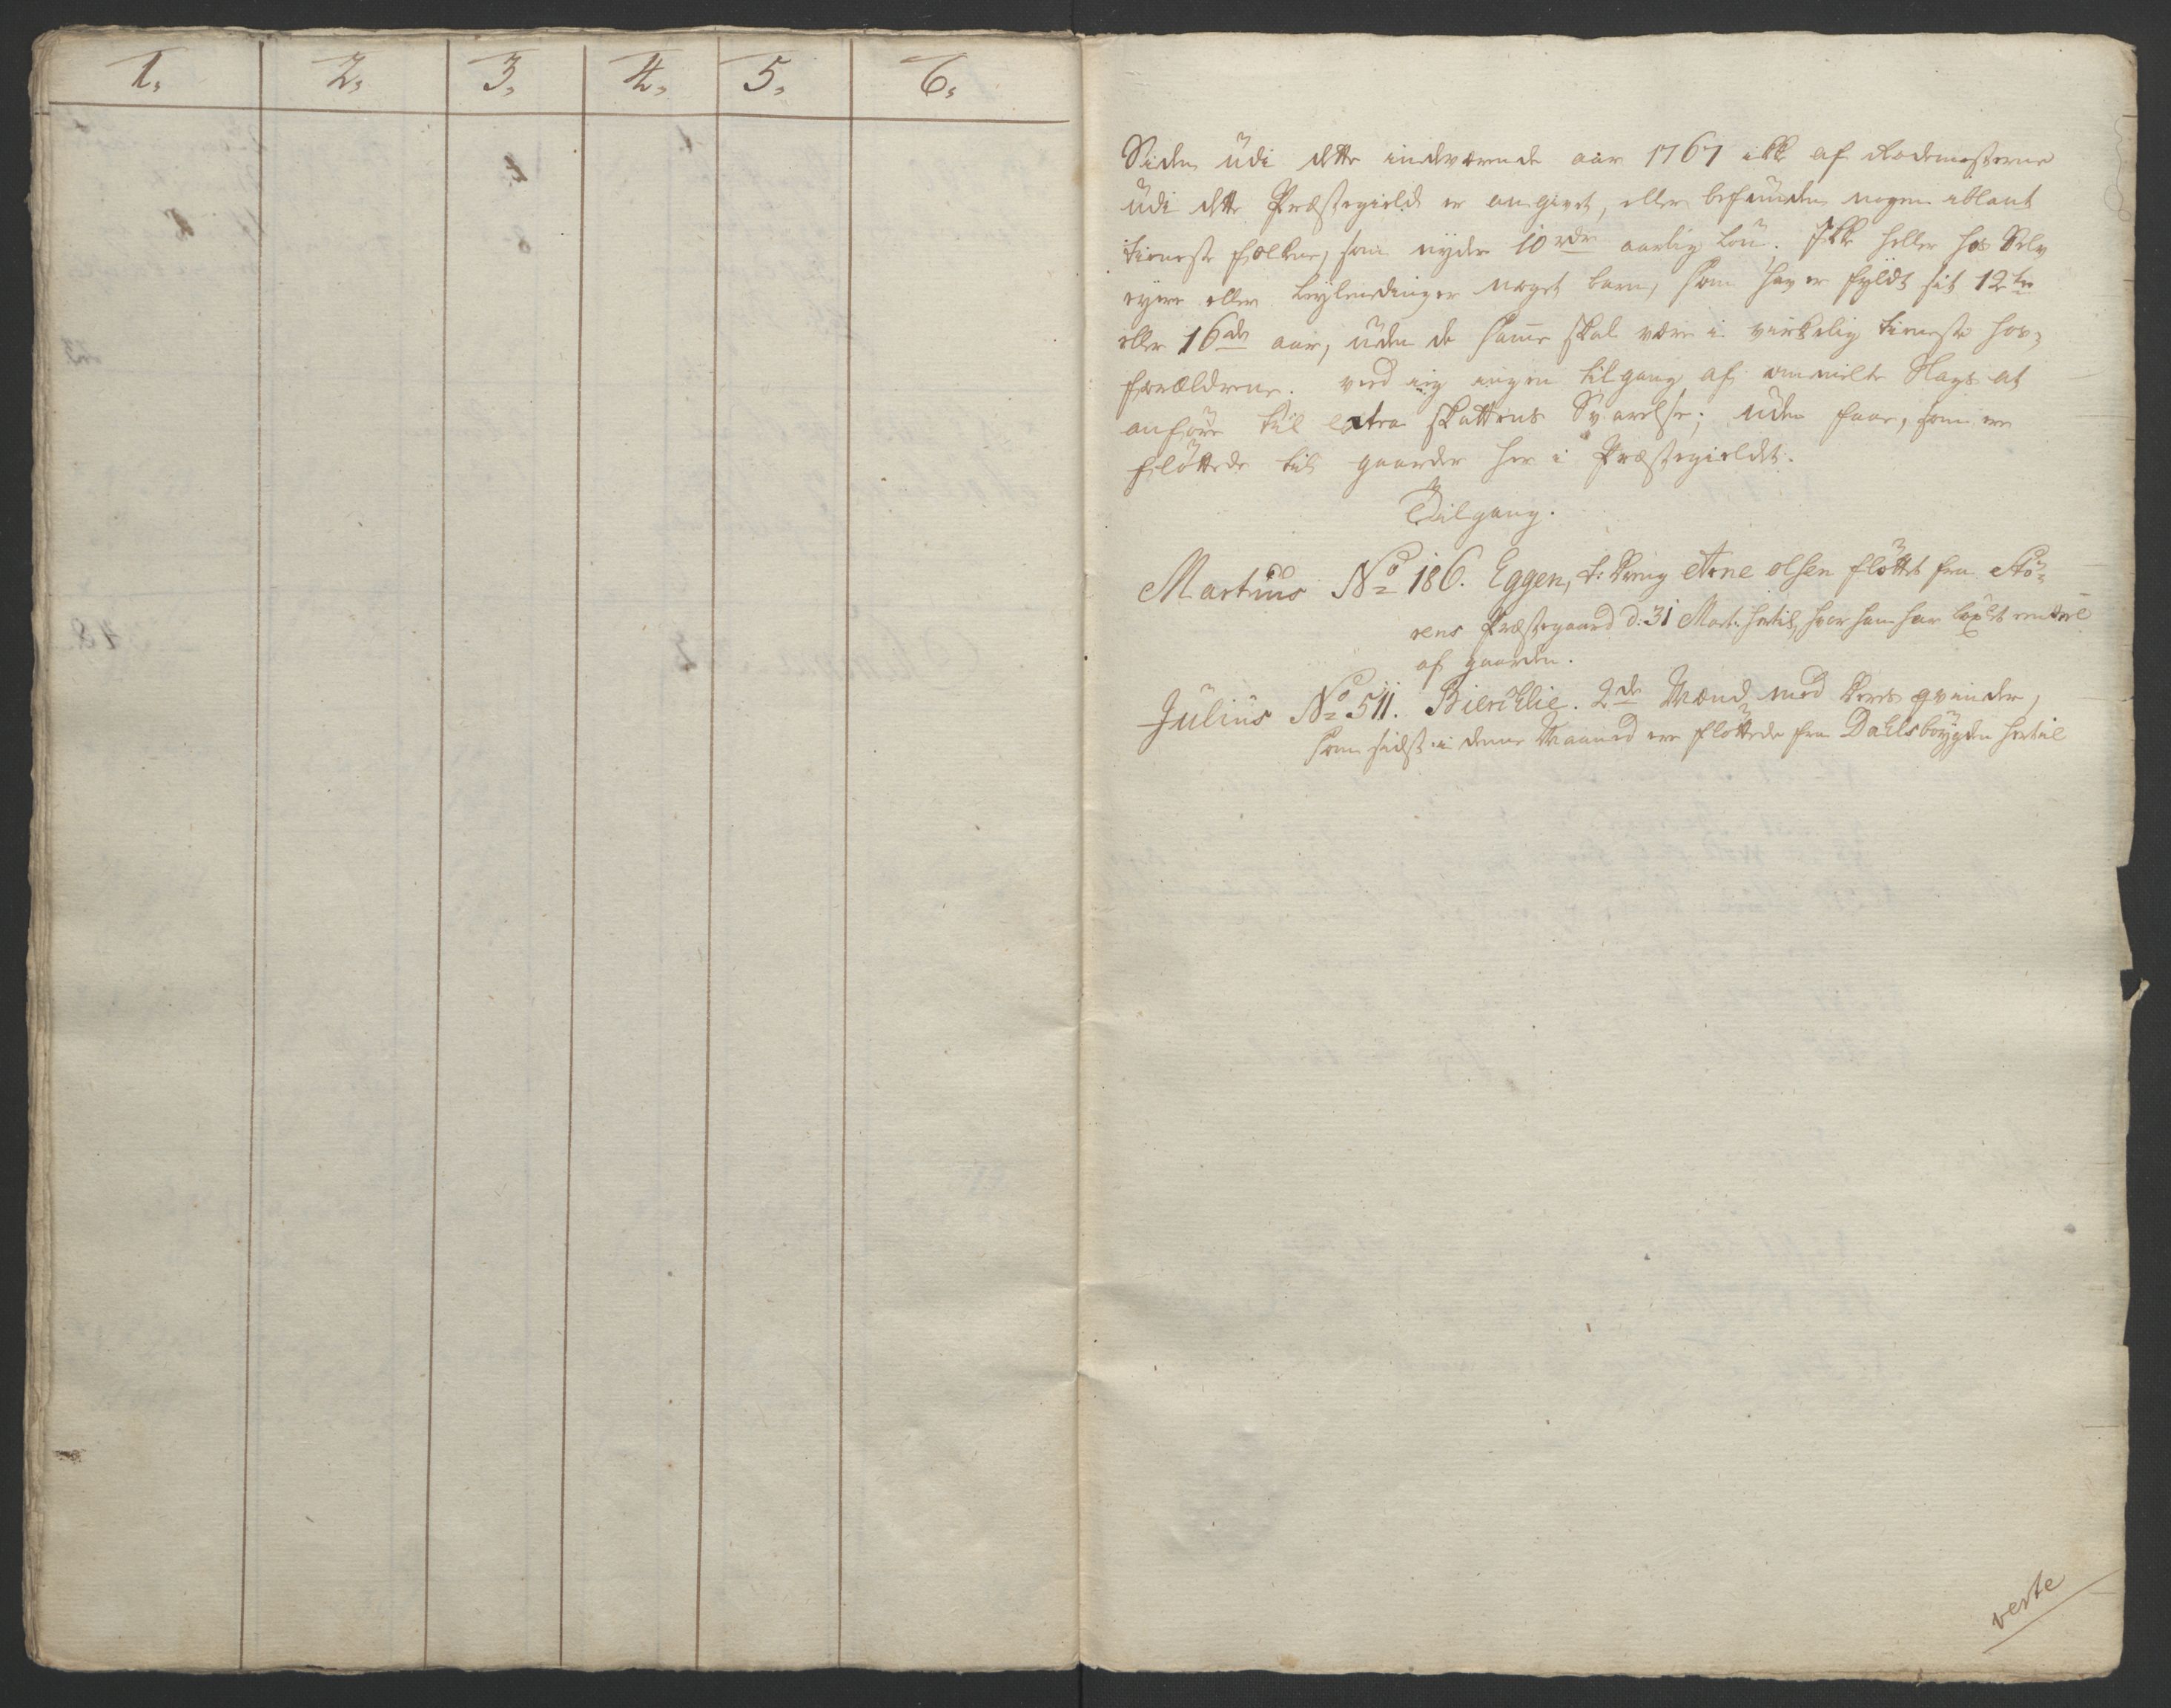 1. 2. 3. 4. 5. 6.
Siden udi dette indværende aar 1767 ikke af Rodemesterne
udi dette Præstegield er angivet, eller befunden nogen iblant
tieneste folkene, som nyder 10 rdr aarlig løn. Ikke heller hos Selv
eyere eller leylendinger noget barn, som haver fyldt sit 12te
eller 16de aar, uden de samme skal være i virkelig tieneste hos
forældrene. veed ieg ingen tilgang af ommelte Slags at
anføre til extra skattens Svarelse; uden faae, som ere
fløttede til gaarder her i Præstegieldet.
Tilgang.
Martius No 186. Eggen, Arne olsen fløttet fra Stø-
rens Præstegaard d: 31 Marti hertil, hvor han har
af gaarden.
Julius No 511. Bierchlie. 2de Mænd med deres qvinder,
som sidst i denne Maaned ere fløttede fra Dahlsbøygden hertil
verte